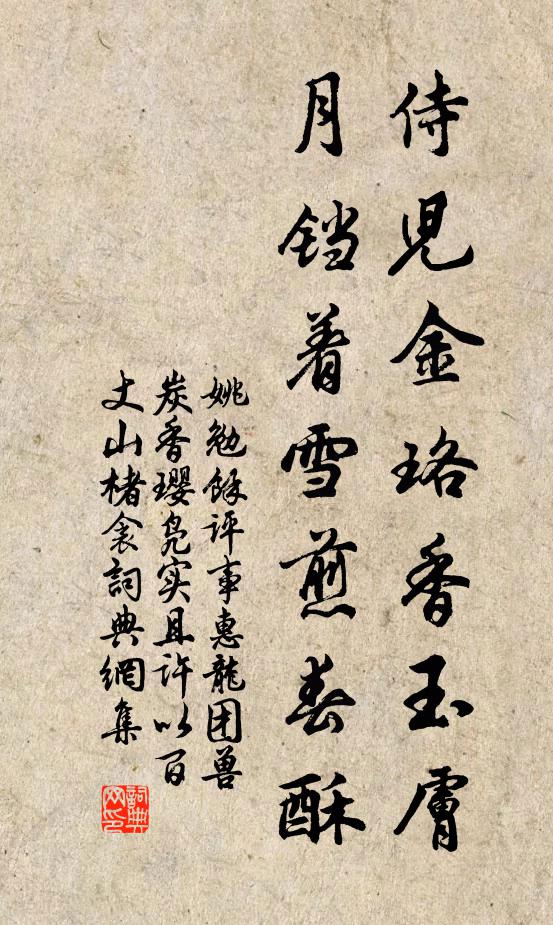 侍兒金珞香玉膚
月铛着雪煎春酥
姚勉餘評事惠龍团兽
炭香璎凫实且許以百
丈山楮衾詞典網集
詞典网印